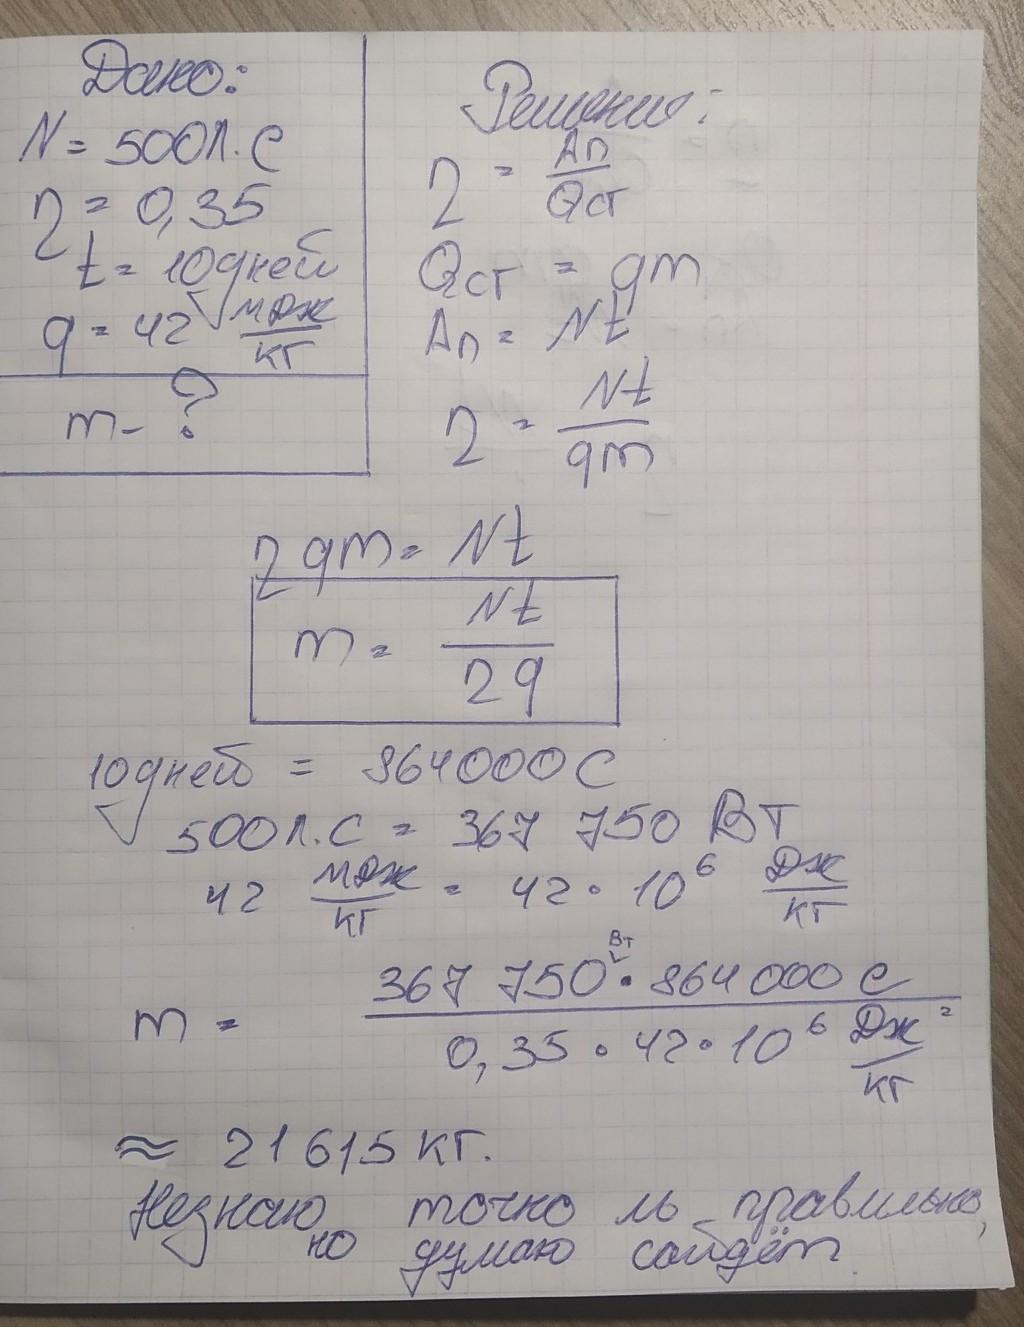 Дано:
N = 500Л.С
η = 0,35
t = 10дней
q = 42 МДЖ/КГ
m - ?
Решение:
η = Ап/Qст
Qст = qm
Ап = Nt
η = Nt/qm
ηqm = Nt
m = Nt/ηq
10дней = 864000 С
500Л.С = 367 750 ВТ
42 МДЖ/КГ = 42 · 10⁶ ДЖ/КГ
m = 367 750 Вт · 864 000 С / 0,35 · 42 · 10⁶ ДЖ/КГ =
≈ 21 615 КГ.
Незнаю точно ль правильно,
но думаю сойдёт.